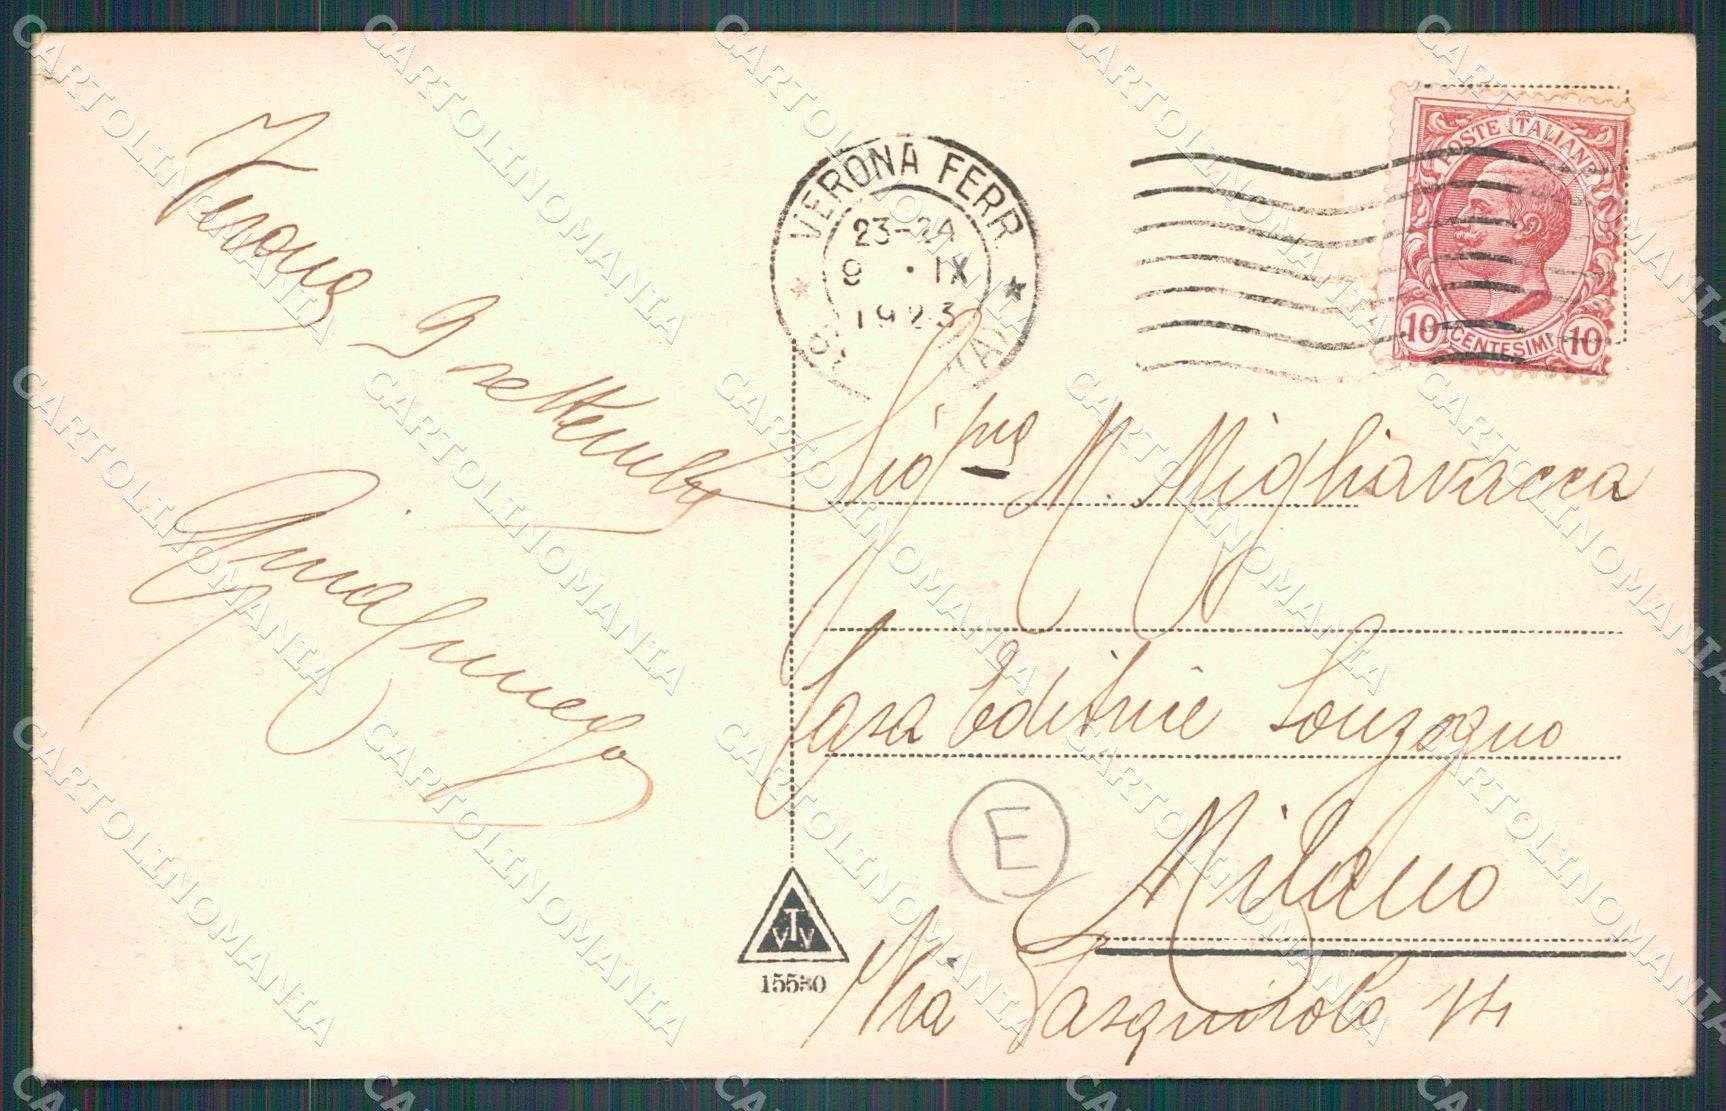 Verona 9 settembre
VERONA FERR.
23-24
9 · IX
1923
POSTE ITALIANE
10 CENTESIMI 10
Sig.na M. Migliavacca
Casa Editrice Sonzogno
E
Milano
Via Pasquirolo 14
TVV
15530
CARTOLINOMANIA